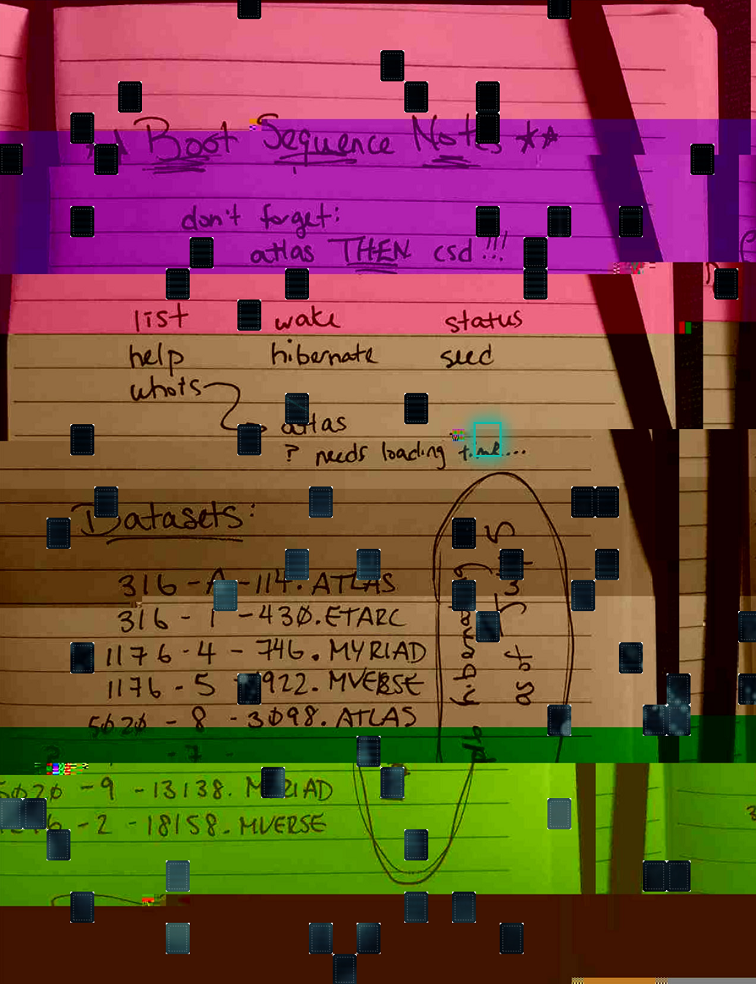 ** Boot Sequence Notes **
don't forget:
atlas THEN csd !!!
list wake status
help hibernate seed
whois
atlas
? needs loading time...
Datasets:
316 - A - 114. ATLAS
316 - 1 - 430. ETARC
1176 - 4 - 746. MYRIAD
1176 - 5 - 1922. MVERSE
5020 - 8 - 3098. ATLAS
5020 - 9 - 13138. MYRIAD
- 2 - 18158. MVERSE
as of